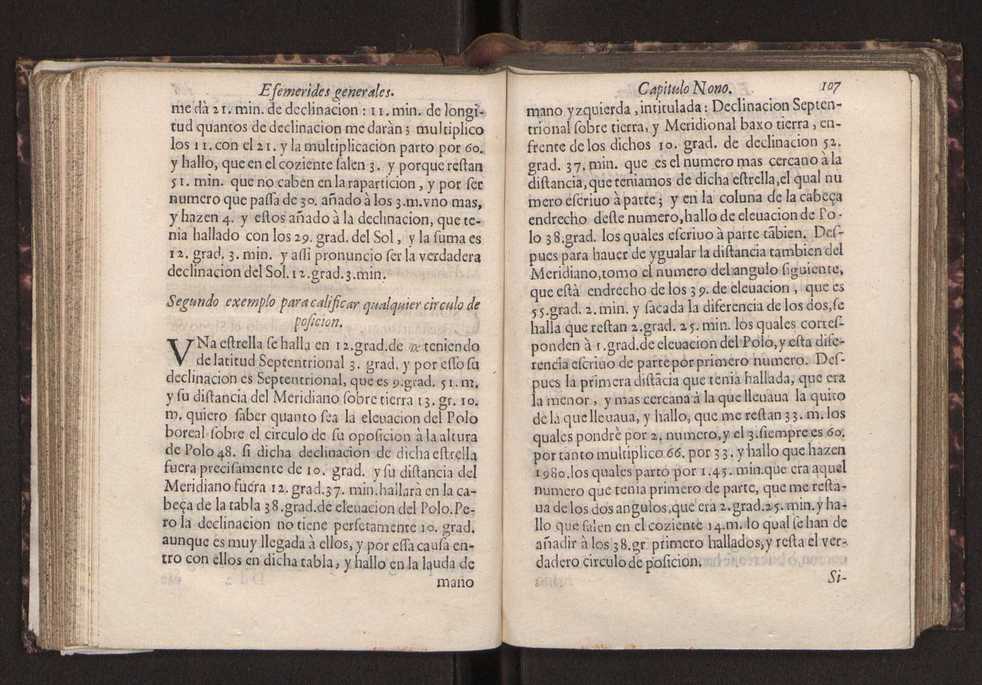 Efemerides generales.
me dà 21. min. de declinacion : 11. min. de longi-
tud quantos de declinacion me daràn; multiplico
los 11. con el 21. y la multiplicacion parto por 60.
y hallo, que en el coziente salen 3. y porque restan
51. min. que no caben en la raparticion, y por ser
numero que passa de 30. añado à los 3.m.vno mas,
y hazen 4. y estos añado à la declinacion, que te-
nia hallado con los 29. grad. del Sol, y la suma es
12. grad. 3. min. y assi pronuncio ser la verdadera
declinacion del Sol.12.grad.3.min.
Segundo exemplo para calificar qualquier circulo de
posicion.
VNa estrella se halla en 12.grad.de teniendo
de latitud Septentrional 3. grad. y por esso su
declinacion es Septentrional, que es 9.grad. 51. m.
y su distancia del Meridiano sobre tierra 13. gr. 10.
m. quiero saber quanto sea la eleuacion del Polo
boreal sobre el circulo de su oposicion à la altura
de Polo 48. si dicha declinacion de dicha estrella
fuera precisamente de 10. grad. y su distancia del
Meridiano fuera 12. grad.37. min.hallarà en la ca-
beça de la tabla 38.grad.de eleuacion del Polo.Pe-
ro la declinacion no tiene perfetamente 10. grad.
aunque es muy llegada à ellos, y por essa causa en-
tro con ellos en dicha tabla, y hallo en la lauda de
mano
Capitulo Nono. 107
mano yzquierda, intitulada: Declinacion Septen-
trional sobre tierra, y Meridional baxo tierra, en-
frente de los dichos 10. grad. de declinacion 52.
grad. 37. min. que es el numero mas cercano à la
distancia, que teniamos de dicha estrella, el qual nu
mero escriuo à parte; y en la coluna de la cabeça
endrecho deste numero, hallo de eleuacion de Po-
lo 38.grad. los quales escriuo à parte tãbien. Des-
pues para hauer de ygualar la distancia tambien del
Meridiano, tomo el numero del angulo siguiente,
que està endrecho de los 39. de eleuacion, que es
55.grad. 2. min. y sacada la diferencia de los dos, se
halla que restan 2. grad. 25. min. los quales corres-
ponden à 1.grad.de eleuacion del Polo, y esta dife-
rencia escriuo de parte por primero numero. Des-
pues la primera distãcia que tenia hallada, que era
la menor, y mas cercana à la que lleuaua la quito
de la que lleuaua, y hallo, que me restan 33. m. los
quales pondrè por 2. numero, y el 3.siempre es 60.
por tanto multiplico 66. por 33. y hallo que hazen
1980.los quales parto por 1.45. min.que era aquel
numero que tenia primero de parte, que me resta-
ua de los dos angulos, que era 2.grad.25.min. y ha-
llo que salen en el coziente 14.m. lo qual se han de
añadir à los 38.gr primero hallados, y resta el ver-
dadero circulo de posicion.
Si-